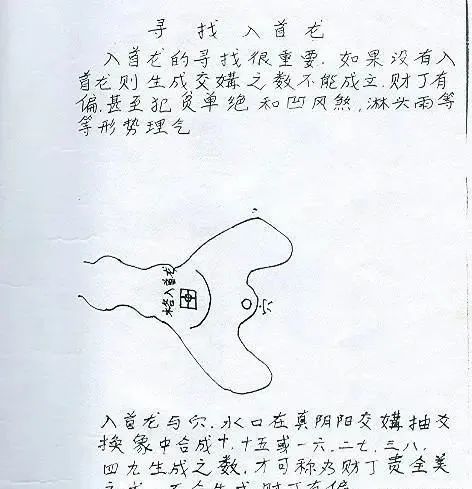 寻找入首龙
入首龙的寻找很重要.如果没有入
首龙则生成交媾之数不能成立.财丁有
偏.甚至犯贫单绝和凹风煞,淋头雨等
等形势理气
格入首龙
穴
入首龙与穴.水口在真阴阳交媾抽交
换象中合成十.十五或一六.二七.三八.
四九生成之数,才可称为财丁贵全美